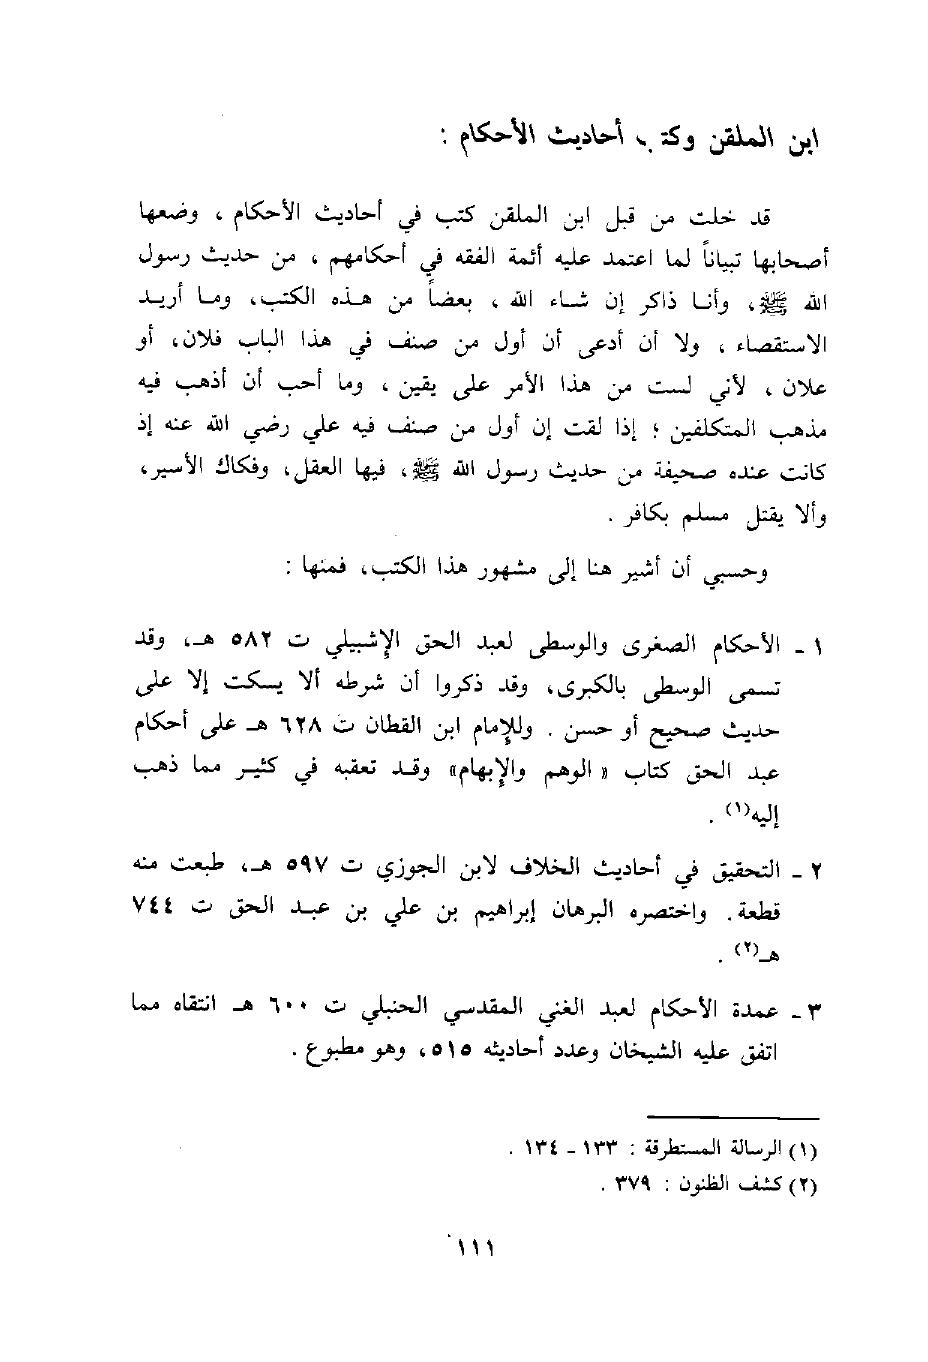 ابن الملقن وكتب أحاديث الأحكام :
قد خلت من قبل ابن الملقن كتب في أحاديث الأحكام ، وضعها
أصحابها تبياناً لما اعتمد عليه أئمة الفقه في أحكامهم ، من حديث رسول
الله ﷺ، وأنا ذاكر إن شاء الله ، بعضاً من هذه الكتب، وما أريد
الاستقصاء ، ولا أن أدعى أن أول من صنف في هذا الباب فلان، أو
علان ، لأني لست من هذا الأمر على يقين ، وما أحب أن أذهب فيه
مذهب المتكلفين ؛ إذا لقت إن أول من صنف فيه علي رضي الله عنه إذ
كانت عنده صحيفة من حديث رسول الله ﷺ، فيها العقل، وفكاك الأسير،
وألا يقتل مسلم بكافر .
وحسبي أن أشير هنا إلى مشهور هذا الكتب، فمنها :
١ - الأحكام الصغرى والوسطى لعبد الحق الإشبيلي ت ٥٨٢ هـ، وقد
تسمى الوسطى بالكبرى، وقد ذكروا أن شرطه ألا يسكت إلا على
حديث صحيح أو حسن . وللإمام ابن القطان ت ٦٢٨ هـ على أحكام
عبد الحق كتاب « الوهم والإبهام» وقد تعقبه في كثير مما ذهب
إليه(١) .
٢ - التحقيق في أحاديث الخلاف لابن الجوزي ت ٥٩٧ هـ، طبعت منه
قطعة. واختصره البرهان إبراهيم بن علي بن عبد الحق ت ٧٤٤
هـ(٢) .
٣ - عمدة الأحكام لعبد الغني المقدسي الحنبلي ت ٦٠٠ هـ انتقاه مما
اتفق عليه الشيخان وعدد أحاديثه ٥١٥، وهو مطبوع .
(١) الرسالة المستطرقة : ١٣٣ - ١٣٤ .
(٢) كشف الظنون : ٣٧٩ .
١١١